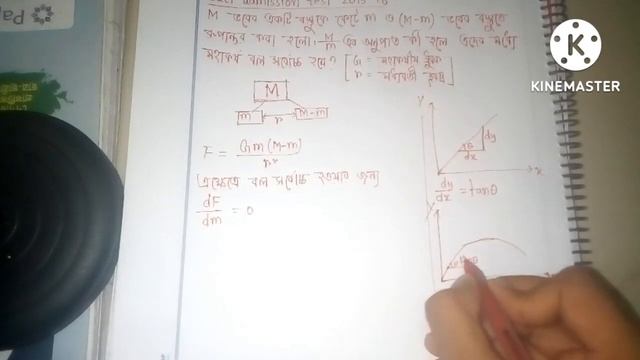 M ভরের একটি বস্তুকে কেটে m ও (M-m) ভরের বস্তুতে
রূপান্তর করা হলো। M/m এর অনুপাত কী হলে এদের মধ্যে
মহাকর্ষ বল সর্বোচ্চ হবে? [ G = মহাকর্ষীয় ধ্রুবক
r = মধ্যবর্তী দূরত্ব ]
M
m r M-m
F = Gm(M-m)/r²
এক্ষেত্রে বল সর্বোচ্চ হওয়ার জন্য
dF/dm = 0
Y
dy
θ
dx
x
dy/dx = tanθ
Y
KINEMASTER